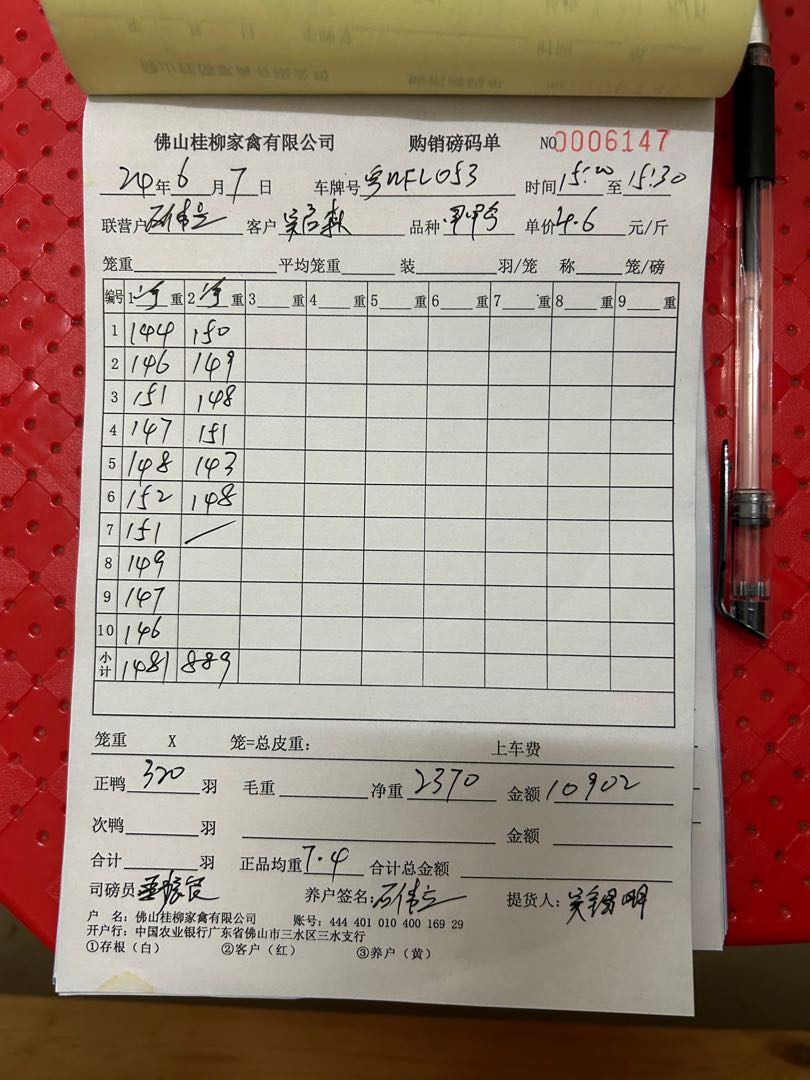 佛山桂柳家禽有限公司 购销磅码单 NO 0006147
24年6月7日 车牌号 粤 053 时间15:20至15:30
联营户 石伟 客户 吴 品种 单价4.6元/斤
笼重 平均笼重 装 羽/笼 称 笼/磅
编号 1 重 2 重 3 重 4 重 5 重 6 重 7 重 8 重 9 重
1 144 150
2 146 149
3 151 148
4 147 151
5 148 143
6 152 148
7 151 /
8 149
9 147
10 146
小计 1481 889
笼重 X 笼=总皮重: 上车费
正鸭 320 羽 毛重 净重 2370 金额 10902
次鸭 羽 金额
合计 羽 正品均重 7.4 合计总金额
司磅员 养户签名: 石伟 提货人: 吴 明
户 名: 佛山桂柳家禽有限公司 账号: 444 401 010 400 169 29
开户行: 中国农业银行广东省佛山市三水区三水支行
①存根（白） ②客户（红） ③养户（黄）